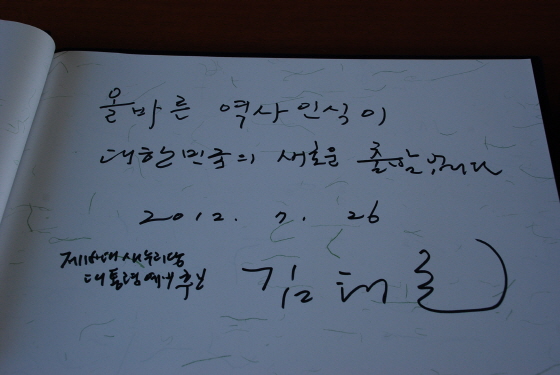 올바른 역사인식이
대한민국의 새로운 출발입니다
2012. 7. 26
제18대 새누리당
대통령 예비 후보
김태호